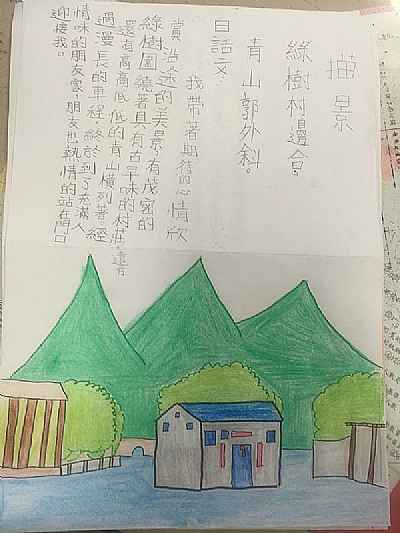 描景
綠樹村邊合。
青山郭外斜。
白話文：
我帶著期待的心情欣
賞沿途的美景，有茂密的
綠樹圍繞著具有古早味的村莊，遠方
還有高高低低的青山橫列著，經
過漫長的車程，終於到了充滿人
情味的朋友家，朋友也熱情的站在門口
迎接我。